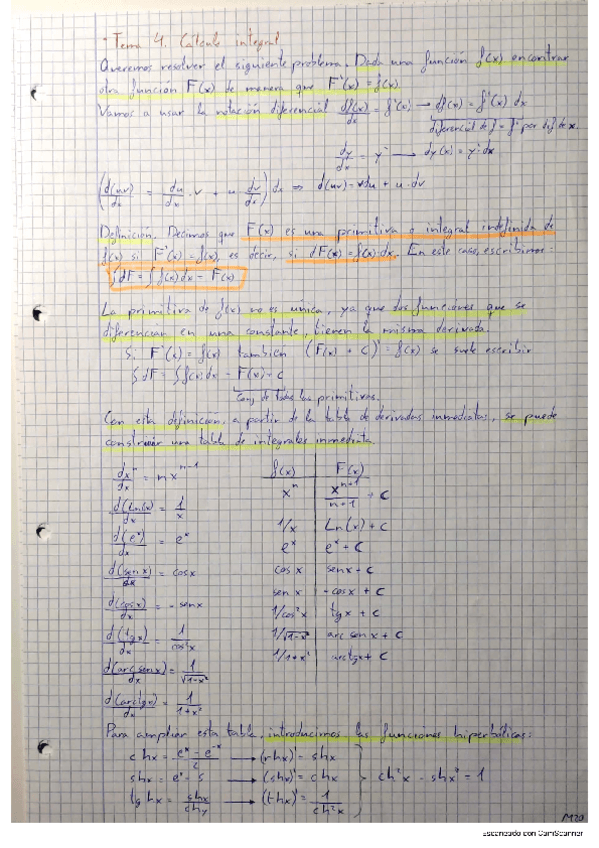 - Tema 4. Cálculo integral
Queremos resolver el siguiente problema. Dada una función f(x) encontrar
otra función F(x) de manera que F'(x) = f(x).
Vamos a usar la notación diferencial df(x)/dx = f'(x) → df(x) = f'(x) dx
diferencial de f = f' por dif de x.
dy/dx = y' → dy(x) = y' dx
(d(uv)/dx = du/dx · v + u dv/dx) dx ⇒ d(uv) = vdu + u·dv
Definición. Decimos que F(x) es una primitiva o integral indefinida de
f(x) si F'(x) = f(x), es decir, si dF(x) = f(x)·dx. En este caso, escribimos:
∫dF = ∫f(x)dx = F(x)
La primitiva de f(x) no es única, ya que dos funciones que se
diferencian en una constante, tienen la misma derivada.
Si F'(x) = f(x) también (F(x) + C)' = f(x) se suele escribir
∫dF = ∫f(x)dx = F(x) + C
Conj de todas las primitivas.
Con esta definición, a partir de la tabla de derivadas inmediatas, se puede
construir una tabla de integrales inmediata
dx^n/dx = n x^(n-1)
d(Ln(x))/dx = 1/x
d(e^x)/dx = e^x
d(sen x)/dx = cos x
d(cos x)/dx = - sen x
d(tg x)/dx = 1/cos²x
d(arc sen x)/dx = 1/√(1-x²)
d(arctg x)/dx = 1/(1+x²)
f(x) | F(x)
x^n | x^(n+1)/(n+1) + C
1/x | Ln(x) + C
e^x | e^x + C
cos x | sen x + C
sen x | -cos x + C
1/cos²x | tg x + C
1/√(1-x²) | arc sen x + C
1/1+x² | arctg x + C
Para ampliar esta tabla, introducimos las funciones hiperbólicas:
chx = (e^x - e^-x)/2 → (chx)' = shx
shx = → (shx)' = chx
tghx = shx/chx → (thx)' = 1/ch²x
ch²x - shx² = 1
Escaneado con CamScanner